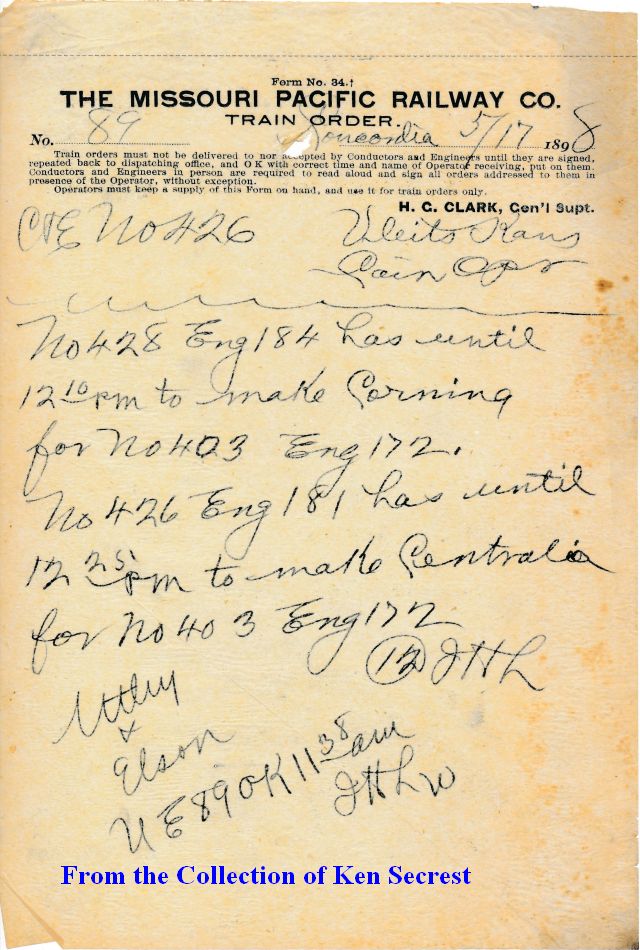 Form No. 34.†
THE MISSOURI PACIFIC RAILWAY CO.
TRAIN ORDER.
No. 89 Concordia 5/17 1898
Train orders must not be delivered to nor accepted by Conductors and Engineers until they are signed,
repeated back to dispatching office, and O K with correct time and name of Operator receiving, put on them.
Conductors and Engineers in person are required to read aloud and sign all orders addressed to them in
presence of the Operator, without exception.
Operators must keep a supply of this Form on hand, and use it for train orders only.
H. G. CLARK, Gen'l Supt.
C&E No 426 Vleits Kans
Opr
No 428 Eng 184 has until
12 10 pm to make Corning
for No 403 Eng 172.
No 426 Eng 181 has until
12 25 pm to make Centralia
for No 403 Eng 172
(12) JHL
Uttley
&
Elson
U E 89 OK 11 38 am
JHL W
From the Collection of Ken Secrest